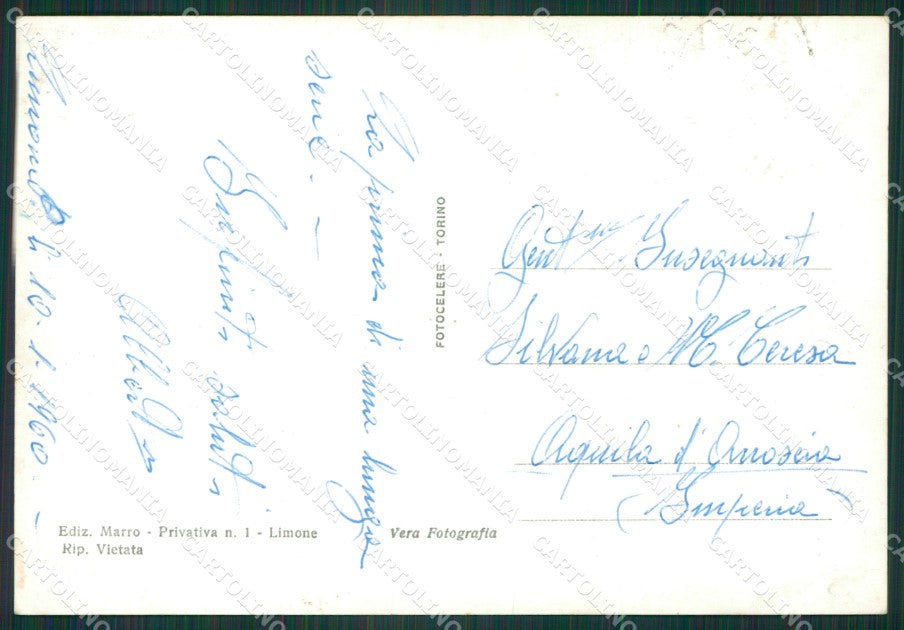 La prima di una lunga
serie. –
Infiniti saluti
Alberto
Limone, li 10.1.1960 –
FOTOCELERE - TORINO
Gent.me Insegnanti
Silvana e M. Ceresa
Aquila d'Arroscia
(Imperia)
Ediz. Marro - Privativa n. 1 - Limone
Rip. Vietata
Vera Fotografia
CARTOLINOMANIA